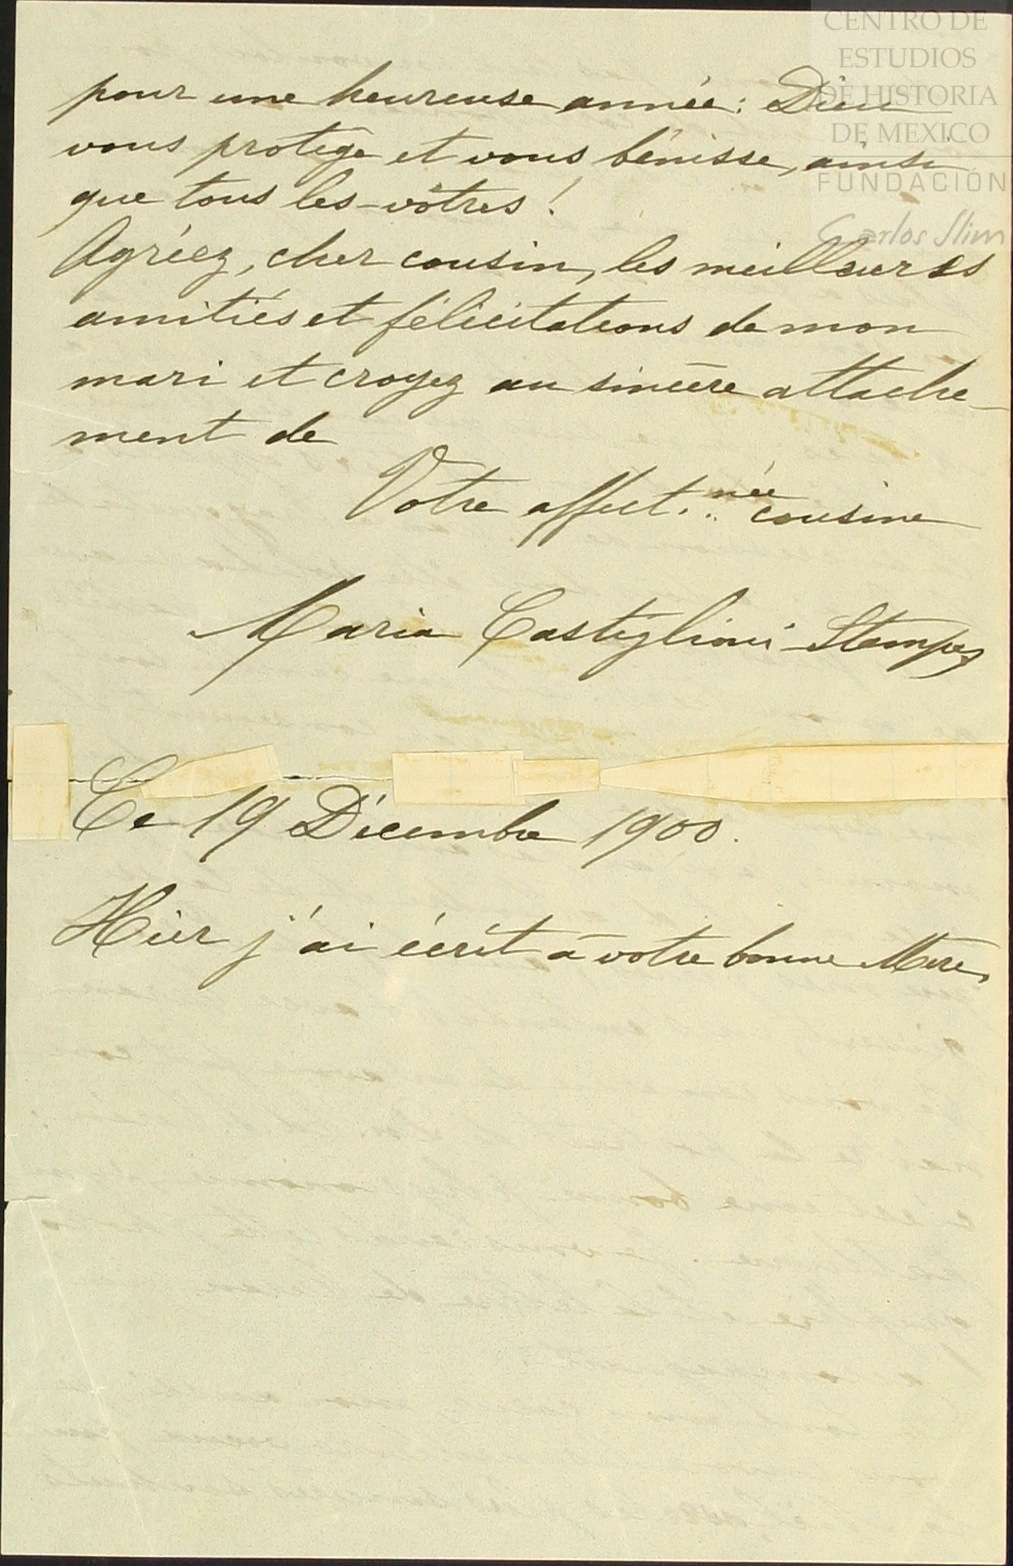 CENTRO DE
ESTUDIOS
DE HISTORIA
DE MEXICO
FUNDACIÓN
Carlos Slim
pour une heureuse année: Dieu
vous protège et vous bénisse, ainsi
que tous les vôtres!
Agréez, cher cousin, les meilleures
amitiés et félicitations de mon
mari et croyez au sincère attache-
ment de
Votre affect.née cousine
Maria Castiglioni
Ce 19 Décembre 1900.
Hier j'ai écrit à votre bonne Mère.